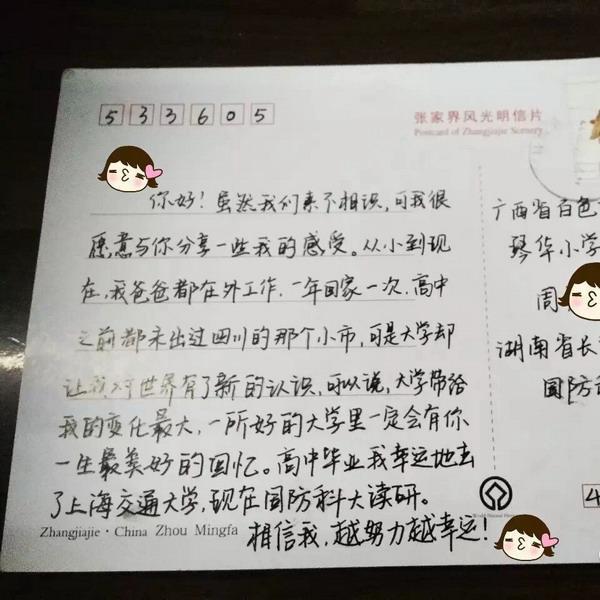 533605
张家界风光明信片
Postcard of Zhangjiajie Scenery
你好！虽然我们素不相识，可我很
愿意与你分享一些我的感受。从小到现
在，我爸爸都在外工作，一年回家一次，高中
之前都未出过四川的那个小市，可是大学却
让我对世界有了新的认识，可以说，大学带给
我的变化最大，一所好的大学里一定会有你
一生最美好的回忆。高中毕业我幸运地去
了上海交通大学，现在国防科大读研。
相信我，越努力越幸运！
Zhangjiajie · China Zhou Mingfa
广西省百色
琴华小学
周
湖南省长
国防
4